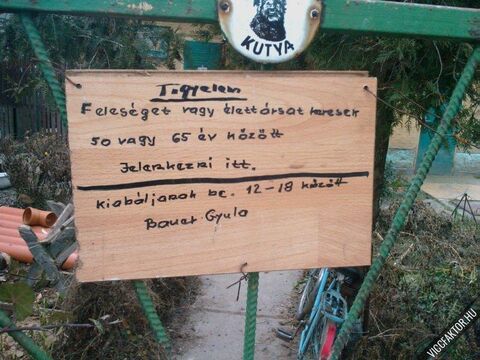 KUTYA
Figyelem
Feleséget vagy élettársat keresek
50 vagy 65 év között
Jelenkezni itt.
kiabáljanak be. 12-18 között
Bauer Gyula
VICCFAKTOR.HU